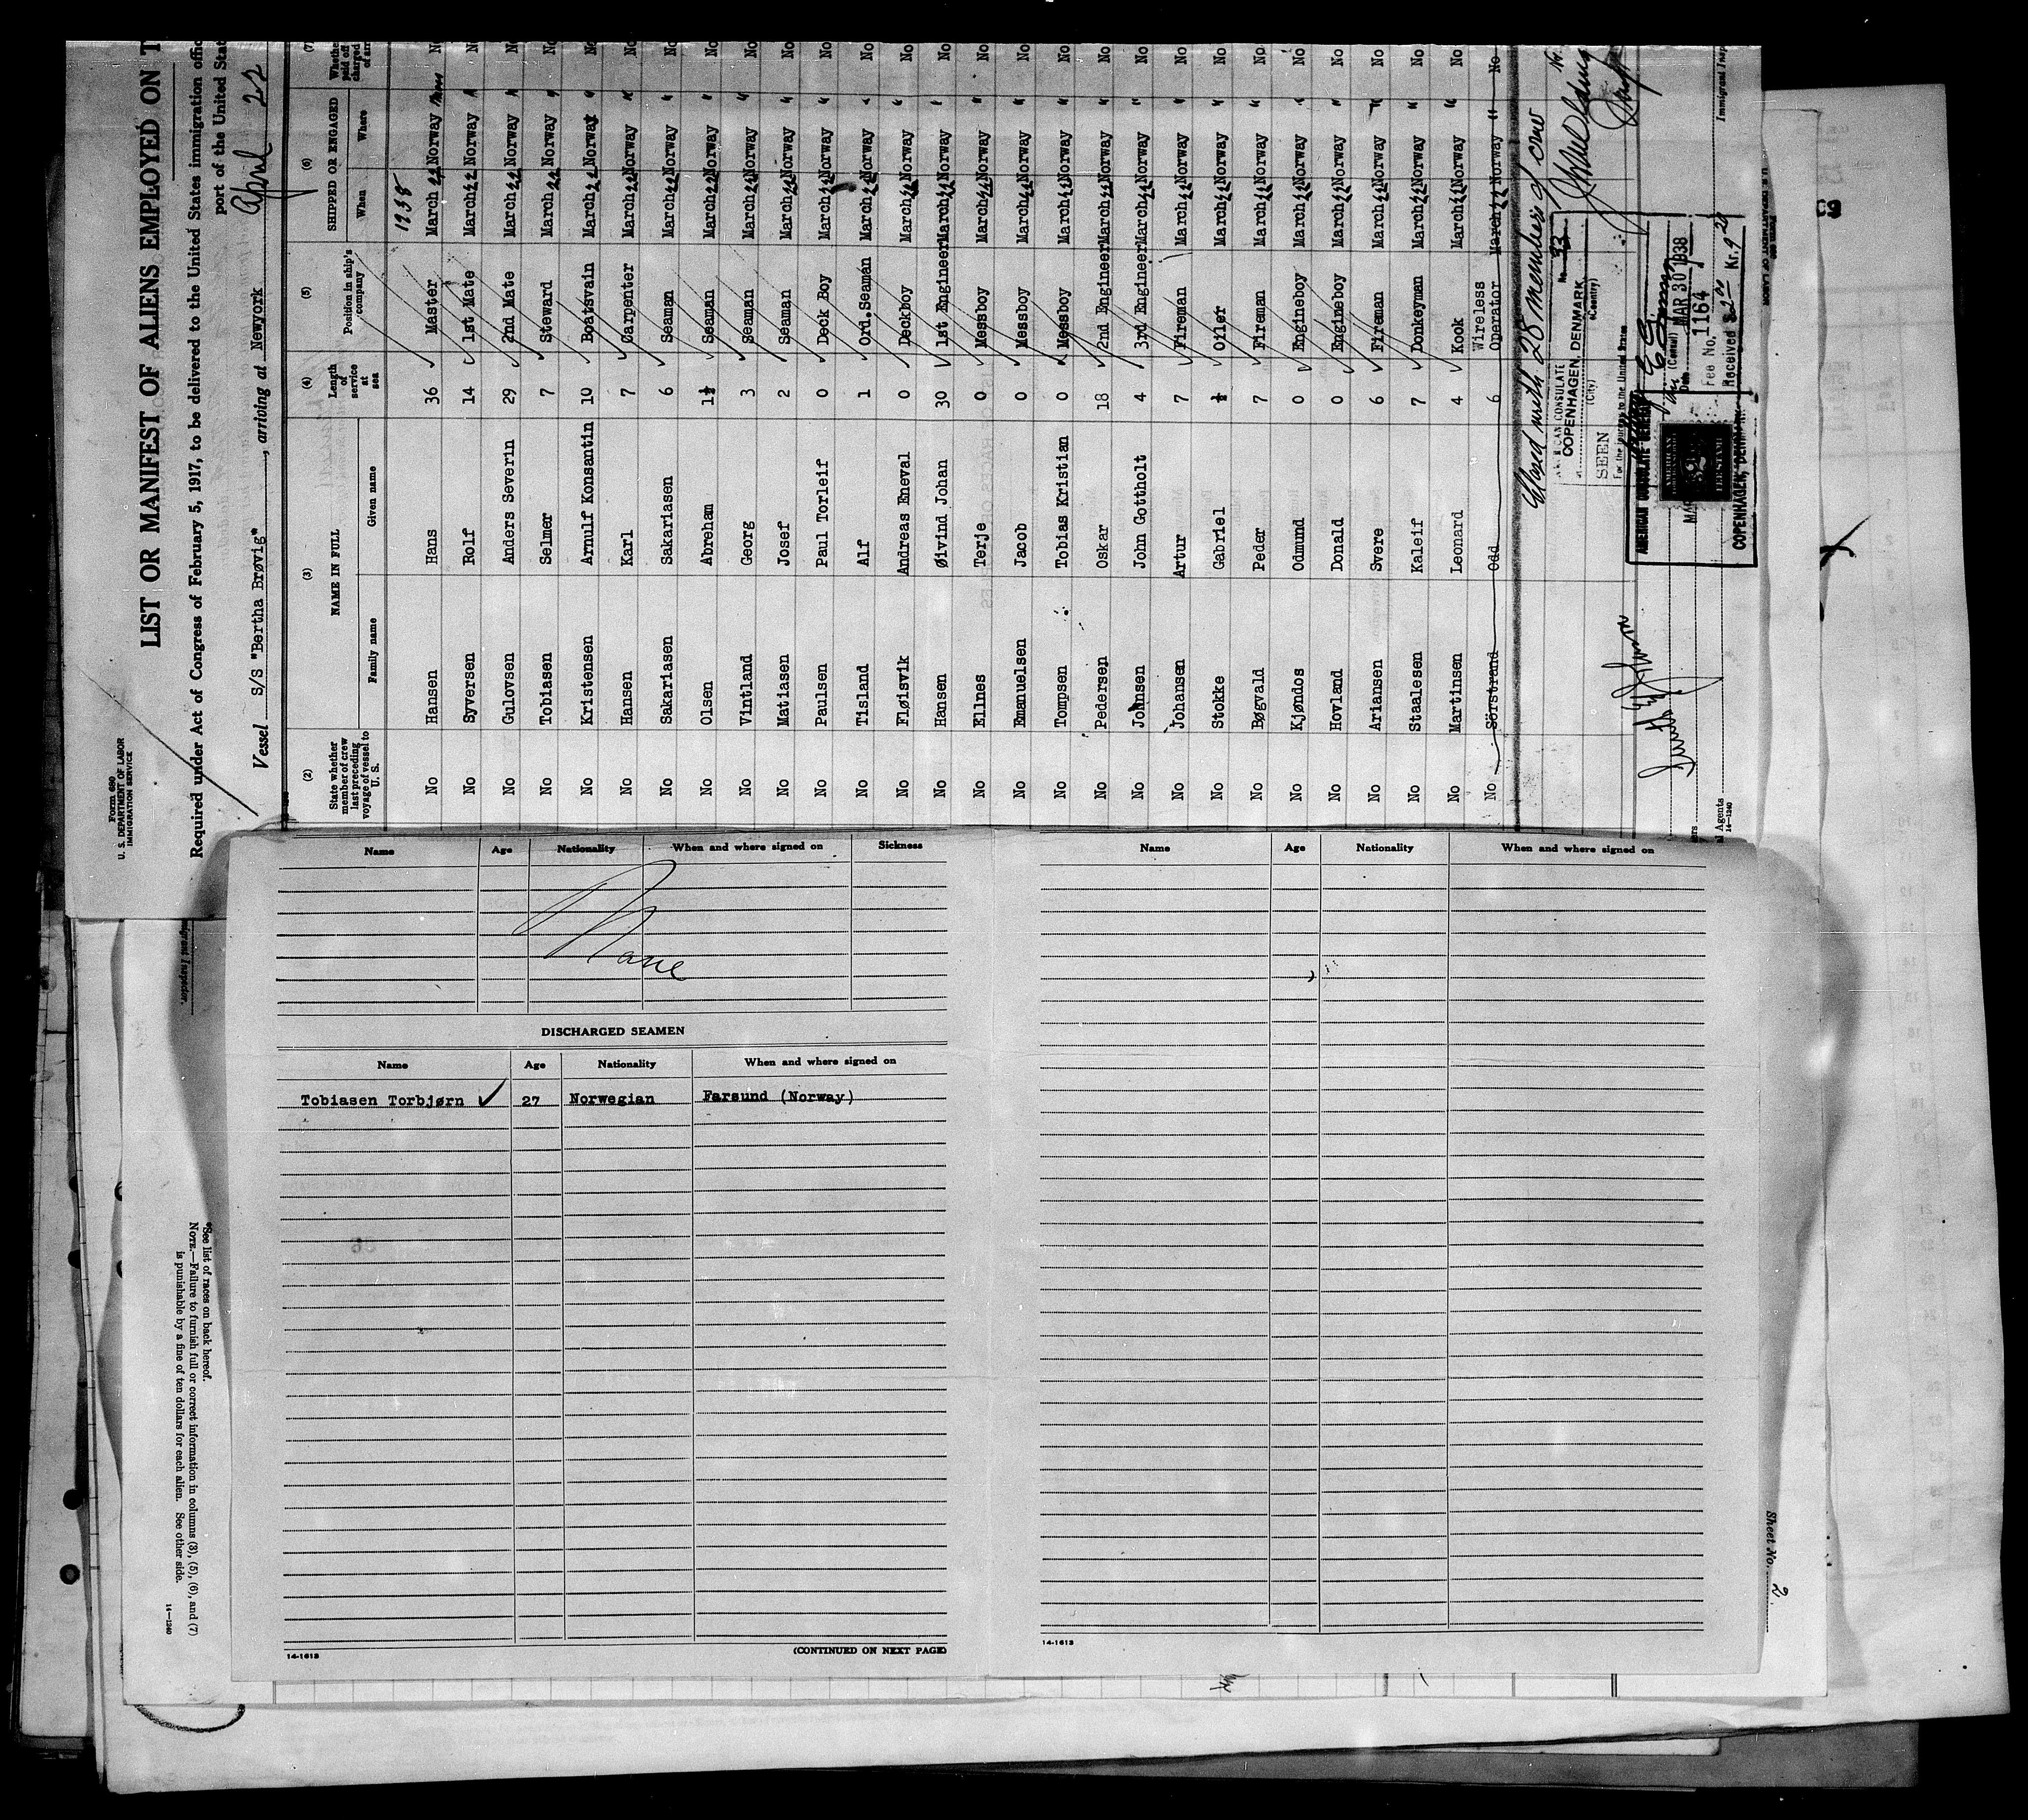 Form 680
U. S. DEPARTMENT OF LABOR
IMMIGRATION SERVICE
LIST OR MANIFEST OF ALIENS EMPLOYED ON T
Required under Act of Congress of February 5, 1917, to be delivered to the United States immigration offic
port of the United Stat
Vessel S/S "Bertha Brøvig", arriving at Newyork April 22
(2) (3) (4) (5) (6) (7)
State whether member of crew last preceding voyage of vessel to U. S.
NAME IN FULL
Family name Given name
Length of service at sea
Position in ship's company
SHIPPED OR ENGAGED
When Where
1938
No Hansen Hans 36 Master March 22 Norway No
No Syversen Rolf 14 1st Mate March 22 Norway " No
No Gulovsen Anders Severin 29 2nd Mate March 22 Norway " No
No Tobiasen Selmer 7 Steward March 22 Norway " No
No Kristensen Arnulf Konsantin 10 Boatsvain March 22 Norway " No
No Hansen Karl 7 Carpenter March 22 Norway " No
No Sakariasen Sakariasen 6 Seaman March 22 Norway " No
No Olsen Abreham 1½ Seaman March 22 Norway " No
No Vintland Georg 3 Seaman March 22 Norway " No
No Matiasen Josef 2 Seaman March 22 Norway " No
No Paulsen Paul Torleif 0 Deck Boy March 22 Norway " No
No Tisland Alf 1 Ord.Seaman March 22 Norway " No
No Fløisvik Andreas Eneval 0 Deckboy March 22 Norway " No
No Hansen Øivind Johan 30 1st Engineer March 22 Norway " No
No Ellnes Terje 0 Messboy March 22 Norway " No
No Emanuelsen Jacob 0 Messboy March 22 Norway " No
No Tompsen Tobias Kristian 0 Messboy March 22 Norway " No
No Pedersen Oskar 18 2nd Engineer March 22 Norway " No
No Johnsen John Gottholt 4 3rd Engineer March 22 Norway " No
No Johansen Artur 7 Fireman March 22 Norway " No
No Stokke Gabriel ½ Oiler March 22 Norway " No
No Bøgvald Peder 7 Fireman March 22 Norway " No
No Kjøndos Odmund 0 Engineboy March 22 Norway " No
No Hovland Donald 0 Engineboy March 22 Norway " No
No Ariansen Svere 6 Fireman March 22 Norway " No
No Staalesen Kaleif 7 Donkeyman March 22 Norway " No
No Martinsen Leonard 4 Kook March 22 Norway " No
No Sörstrand Odd 6 Wireless Operator March 22 Norway " No
Closed with 28 members of crew
AMERICAN CONSULATE
COPENHAGEN, DENMARK
(City) (Country)
No. 33
SEEN
For the journey to the United States
AMERICAN CONSULATE GENERAL
(Consul)
Date MAR 30 1938
Fee No. 1164
Received $2.00 Kr.9
COPENHAGEN, DENMARK
Immigrant Insp
14—1240
Name Age Nationality When and where signed on Sickness
None
DISCHARGED SEAMEN
Name Age Nationality When and where signed on
Tobiasen Torbjørn 27 Norwegian Farsund (Norway)
14-1613
(CONTINUED ON NEXT PAGE)
Name Age Nationality When and where signed on
14-1613
*See list of races on back hereof.
NOTE.—Failure to furnish full or correct information in columns (3), (5), (6), and (7)
is punishable by a fine of ten dollars for each alien. See other side.
14—1240
Sheet No. 2